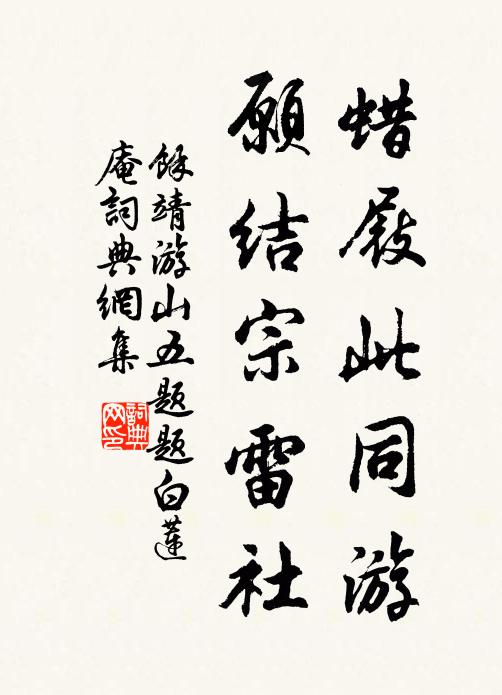 蜡屐此同游
願结宗雷社
馀靖游山五题题白蓮
庵詞典網集
詞典网印